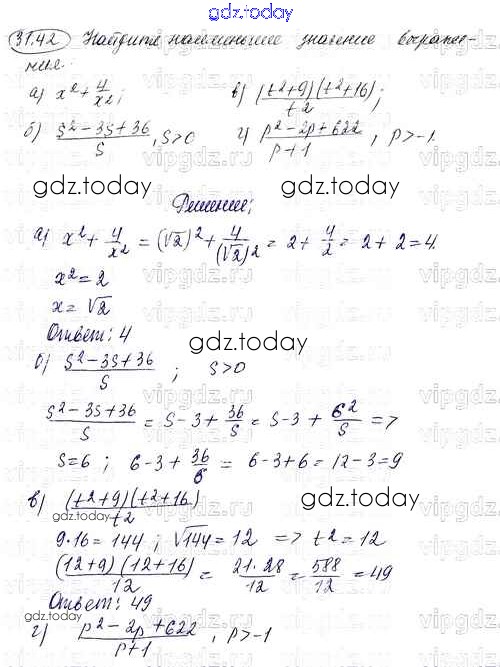 gdz.today
31.42 Найдите наименьшее значение выраже-
ния.
а) x² + 4/x²; в) (t²+9)(t²+16)/t²;
б) (s²-3s+36)/s, s>0 г) (p²-2p+622)/(p+1), p>-1.
gdz.today gdz.today
Решение;
а) x² + 4/x² = (√2)² + 4/(√2)² = 2 + 4/2 = 2 + 2 = 4.
x² = 2
x = √2
Ответ: 4
gdz.today
б) (s²-3s+36)/s ; s>0
(s²-3s+36)/s = s-3 + 36/s = s-3 + 6²/s =>
s=6 ; 6-3 + 36/6 = 6-3+6 = 12-3 = 9
в) (t²+9)(t²+16)/t²
gdz.today gdz.today
9·16=144 ; √144 = 12 => t² = 12
(12+9)(12+16)/12 = 21·28/12 = 588/12 = 49
Ответ: 49
gdz.today
г) (p²-2p+622)/(p+1), p>-1
gdz.today